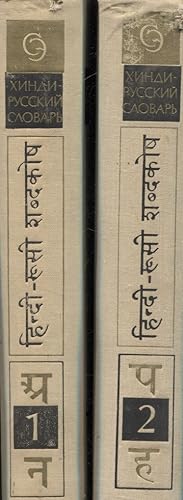 ХИНДИ-
РУССКИЙ
СЛОВАРЬ
हिन्दी-रूसी शब्दकोष
अ
1
न
ХИНДИ-
РУССКИЙ
СЛОВАРЬ
हिन्दी-रूसी शब्दकोष
प
2
ह